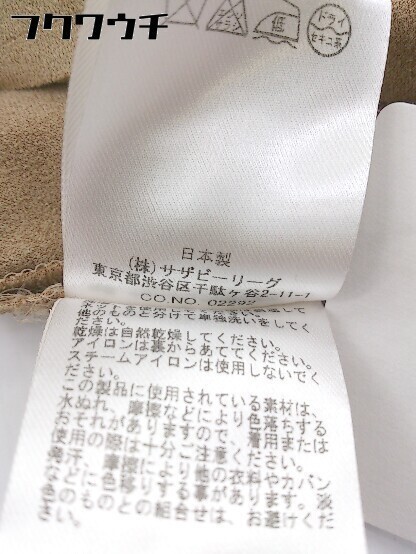 フクワウチ
低
ドライ
セキユ系
日本製
(株)サザビーリーグ
東京都渋谷区千駄ケ谷2-11-1
CO.NO. 02292
他のものと分けて単独洗いをしてく
ださい。
乾燥は自然乾燥してください。
アイロンは裏からあててください。
スチームアイロンは使用しないでく
ださい。
この製品に使用されている素材は、
水ぬれ、摩擦などにより色落ちする
おそれがありますので、着用または
使用の際は十分ご注意ください。
発汗、摩擦により他の衣料やカバン
などに色移りする事があります。淡
色のものとの組合せは、お避けくだ
さい。